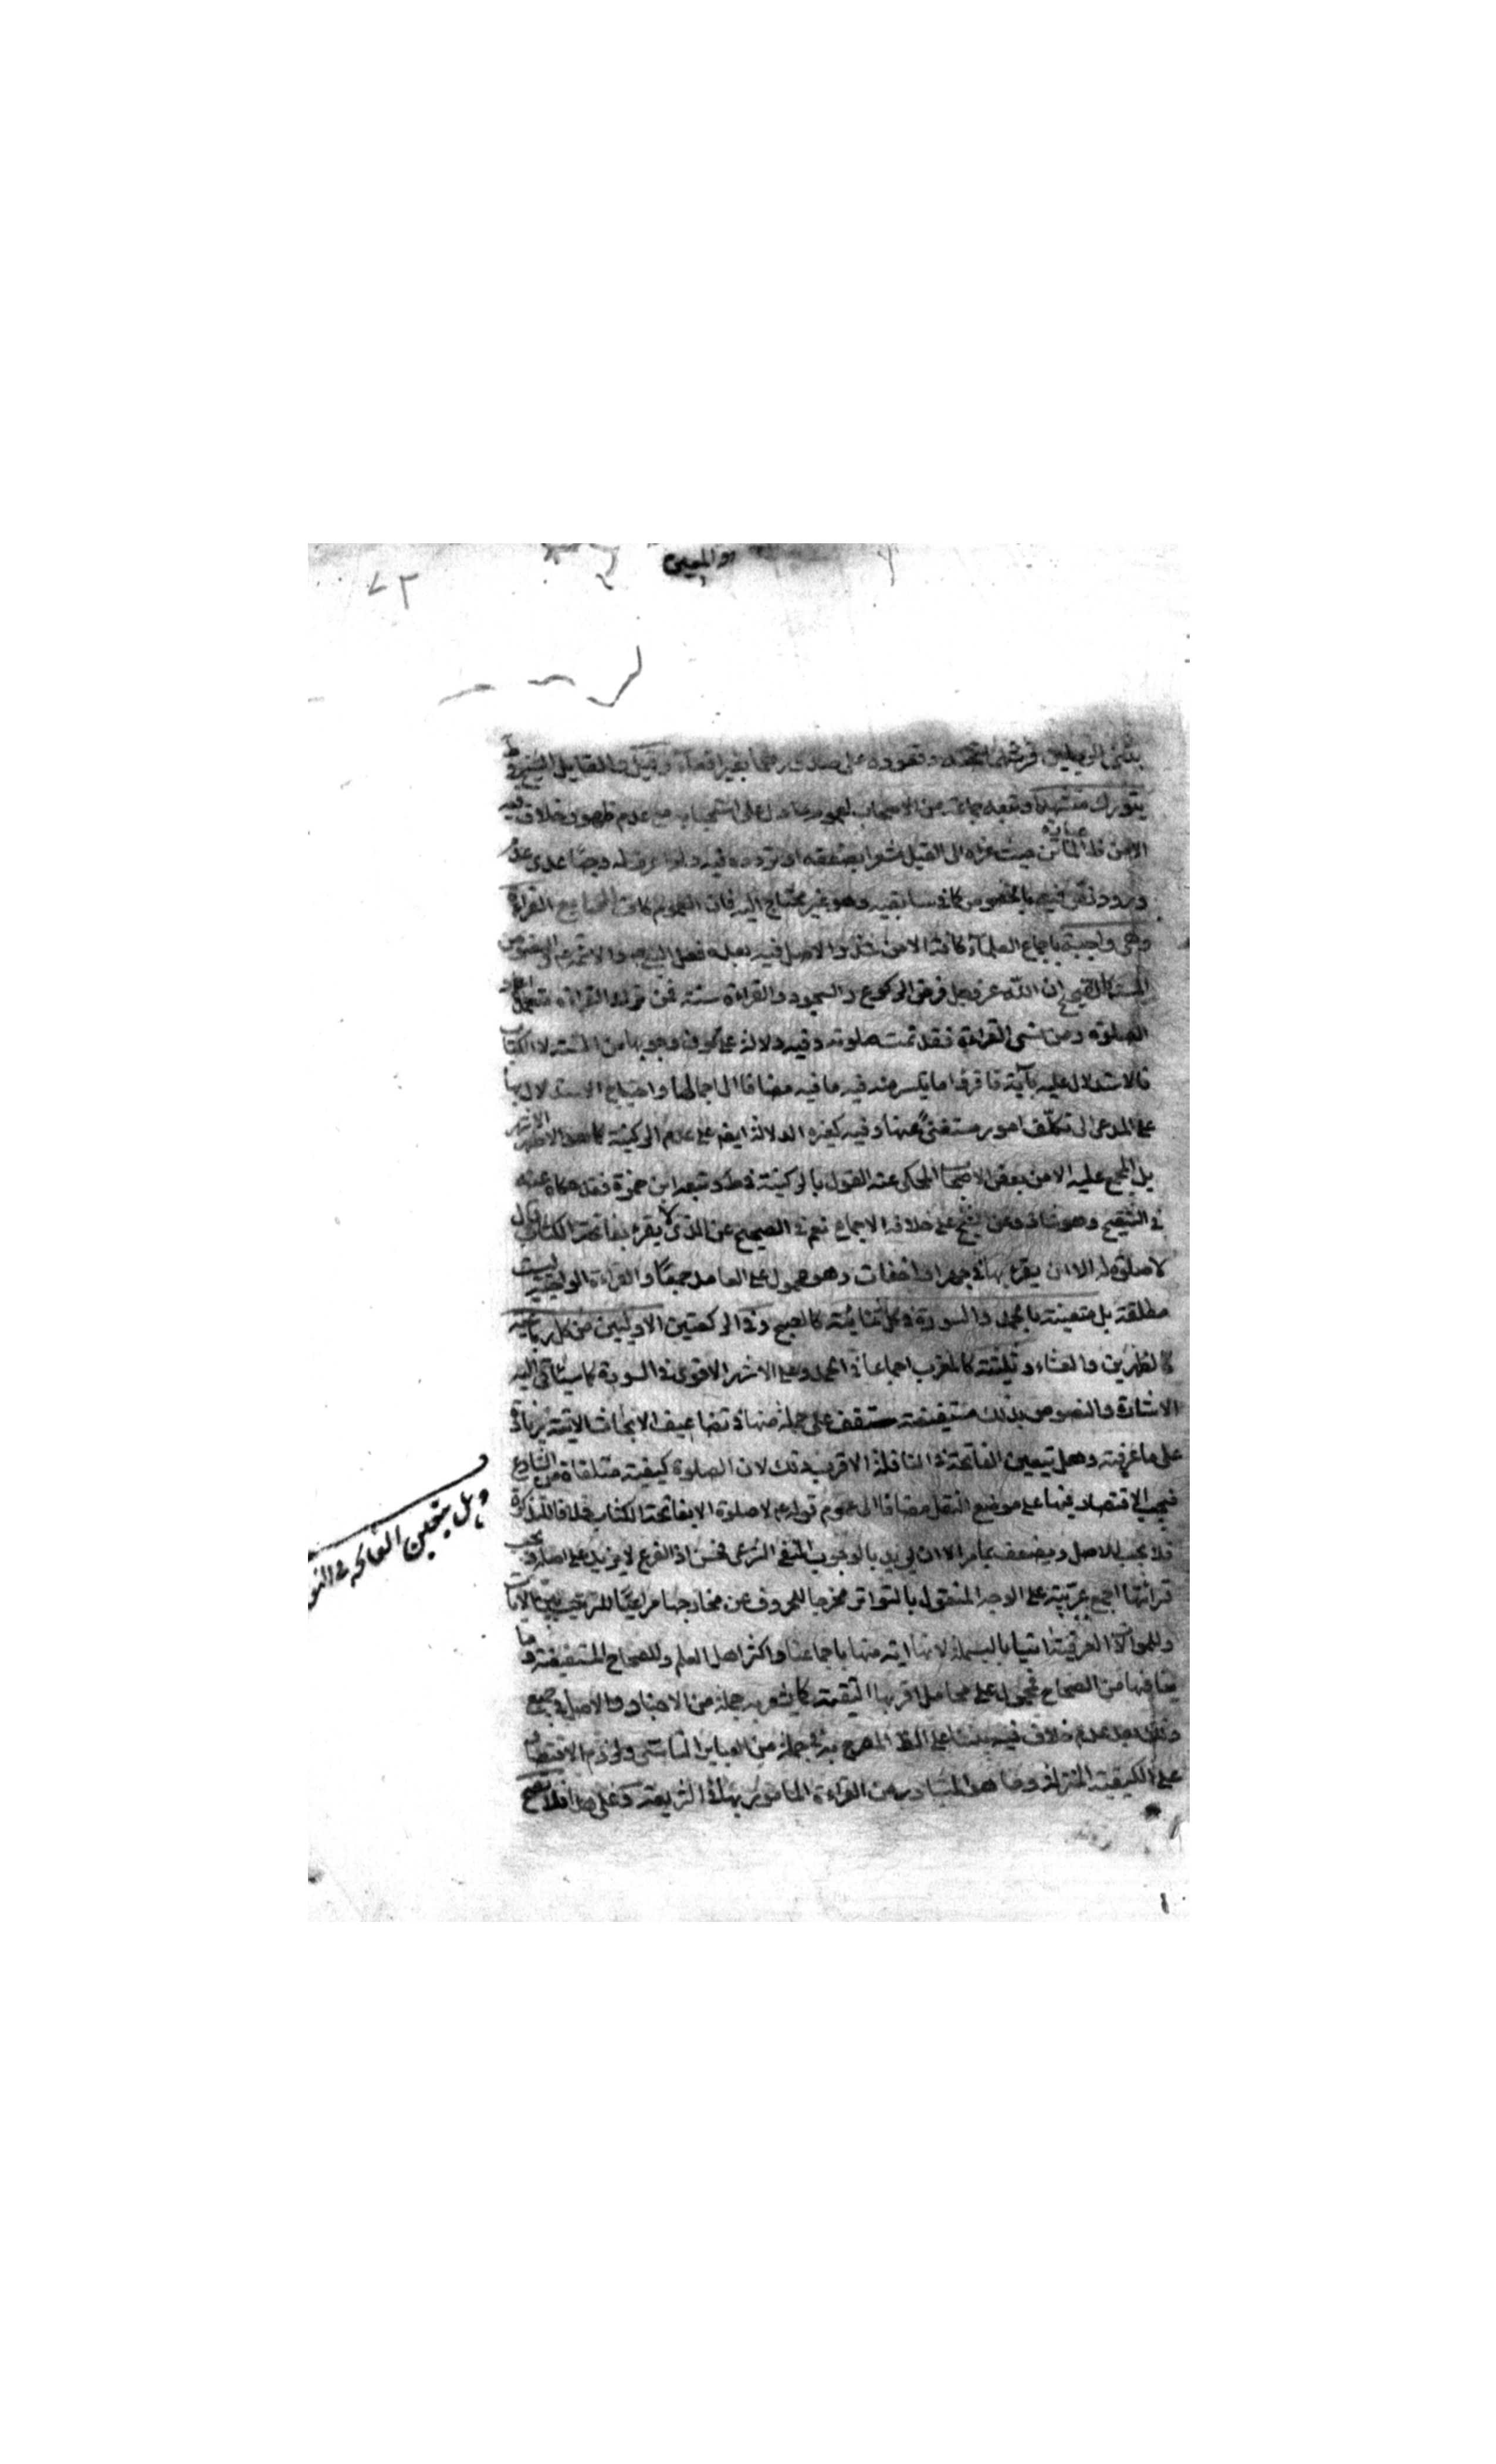 والمعين
٧٣
يثني الرجلين فرشهما تحته وقعوده على صدورهما بغير اقعاء وقيل والقايل الشيخ وط
يتورك متشهدا وتبعه جماعة من الاصحاب لعموم ما دل على استحبابه مع عدم ظهور خلاف فيه
الا من عبارة الماتن حيث عزاه الى القيل مشعرا بضعفه او تردده فيه ولم اعرف له وجها عدى عدم
ورود نص فيه بالخصوص كما في سابقيه وهو غير محتاج اليه فان العموم كاف الرابع القراءة
وهي واجبة باجماع العلماء كافة الا من شذ والاصل فيه بعده فعل النبي والائمة والنصوص
المستفيضة ان الله عز وجل فرض الركوع والسجود والقراءة سنة فمن ترك القراءة متعمدا اعاد
الصلوة ومن نسى القراءة فقد تمت صلوته وفيه دلالة على كون وجوبها من السنة لا الكتاب
فالاستدلال عليه بآية فاقرؤا ما تيسر منه فيه ما فيه مضافا الى اجمالها واحتياج الاستدلال بها
على المدعى الى تكلف امور مستغنى عنها وفيه كغيره الدلالة ايضا على عدم الركنية كما هو الاظهر الاشهر
بل المجمع عليه الا من بعض الاصحاب المحكى عنه القول بالركنية في ط وتبعه ابن حمزة فقد حكاه عنه
في التنقيح وهو شاذ وعن الشيخ على خلافه الاجماع نعم في الصحيح عن الذي لا يقرء بفاتحة الكتاب قال
لا صلوة له الا ان يقرء بها في جهر او اخفات وهو محمول على العامد جمعا والقراءة الواجبة ليست
مطلقة بل متعينة بالحمد والسورة في كل ثنائية كالصبح وفي الركعتين الاوليين من كل رباعية
كالظهرين والعشاء وثلثية كالمغرب اجماعا في الحمد وعلى الاشهر الاقوى في السورة كما سيأتي اليه
الاشارة والنصوص بذلك مستفيضة ستقف على جملة منها في تضاعيف الابحاث الاتية بزيادة
على ما عرفته وهل تتعين الفاتحة في النافلة الاقرب ذلك لان الصلوة كيفية متلقاة من الشارع
فيجب الاقتصار فيها على موضع النقل مضافا الى عموم قوله لا صلوة الا بفاتحة الكتاب خلافا للتذكرة
فلا يجب للاصل ويضعف بما مر الا ان يريد بالوجوب المنفى الشرعى فحسن اذ الفرع لا يزيد على اصله ويجب
قرائتها اجمع عربية على الوجه المنقول بالتواتر مخرجا للحروف عن مخارجها مراعيا للترتيب بين الايات
وللموالاة العرفية اتيا بالبسملة لانها اية منها باجماعنا واكثر اهل العلم وللصحاح المستفيضة وما
ينافيها من الصحاح محمول على محامل اقربها التقية كما يشعر به جملة من الاخبار والاصل في جميع
ذلك بعد عدم خلاف فيه بيننا على الظ المصرح به في جملة من العباير التاسي ولزوم الاقتصار
على الكيفية المنزلة وما هو المتبادر من القراءة المامور بها في الشريعة وعلى هذا فلا تصح
وهل يتعين الفاتحة في النو